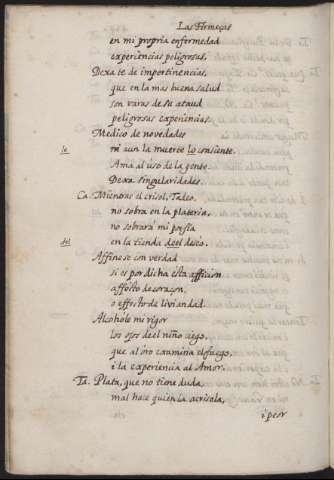 Las Firmeças
en mi propria enfermedad
experiencias peligrosas.
Dexa te de impertinencias,
que en la mas buena salud
son varas de su ataud
peligrosas experiencias.
Medico de novedades
ni aun la muerte lo consiente.
le
Ama al uso de la gente.
Dexa singularidades.
Ca. Mientras el crisol, Tadeo,
no sobra en la plateria,
no sobrarà mi porfia
en la tienda deel deseo.
del
Affinese con verdad
si es por dicha esta afficion
affecto de coraçon,
o effecto de liviandad.
Alcohòle mi rigor
los ojos de el niño ciego,
que al oro examina el fuego,
i la experiencia al Amor.
Ta. Plata, que no tiene duda,
mal hace quien la acrisola,
i peor